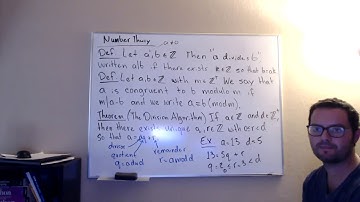 Number Theory a≠0
Def: Let a,b∈ℤ. Then "a divides b"
written a|b if there exists k∈ℤ so that b=ak
Def: Let a,b∈ℤ with m∈ℤ⁺. We say that
a is congruent to b modulo m if
m|a-b and we write a≡b(mod m).
Theorem (The Division Algorithm) If a∈ℤ and d∈ℤ⁺,
then there exists unique q,r∈ℤ with 0≤r<d
so that a=dq+r
remainder
quotient
q=a div d
r=a mod d
Ex a=13 d=5
13=5q+r
q=2 r=3<d